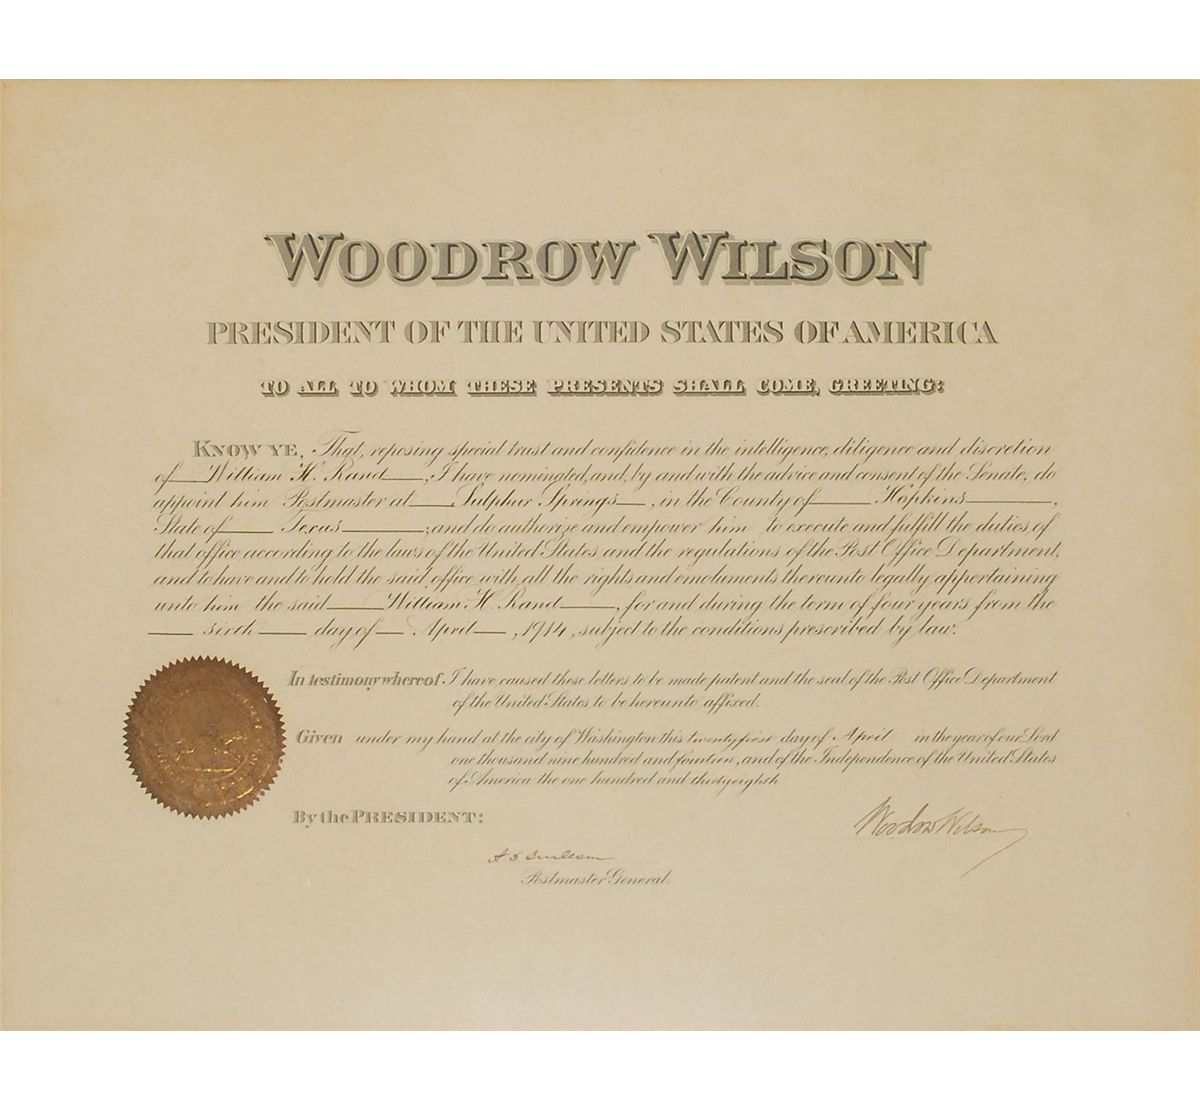 WOODROW WILSON
PRESIDENT OF THE UNITED STATES OF AMERICA
TO ALL TO WHOM THESE PRESENTS SHALL COME, GREETING:
KNOW YE, That, reposing special trust and confidence in the intelligence, diligence and discretion
of William H. Rand, I have nominated, and, by and with the advice and consent of the Senate, do
appoint him Postmaster at Sulphur Springs, in the County of Hopkins,
State of Texas; and do authorize and empower him to execute and fulfill the duties of
that office according to the laws of the United States and the regulations of the Post Office Department,
and to have and to hold the said office with all the rights and emoluments thereunto legally appertaining
unto him the said William H. Rand, for and during the term of four years from the
sixth day of April, 1914, subject to the conditions prescribed by law.
In testimony whereof I have caused these letters to be made patent and the seal of the Post Office Department
of the United States to be hereunto affixed.
Given under my hand at the city of Washington this twenty first day of April in the year of our Lord
one thousand nine hundred and fourteen, and of the Independence of the United States
of America the one hundred and thirty eighth
By the PRESIDENT:
Woodrow Wilson
Postmaster General.